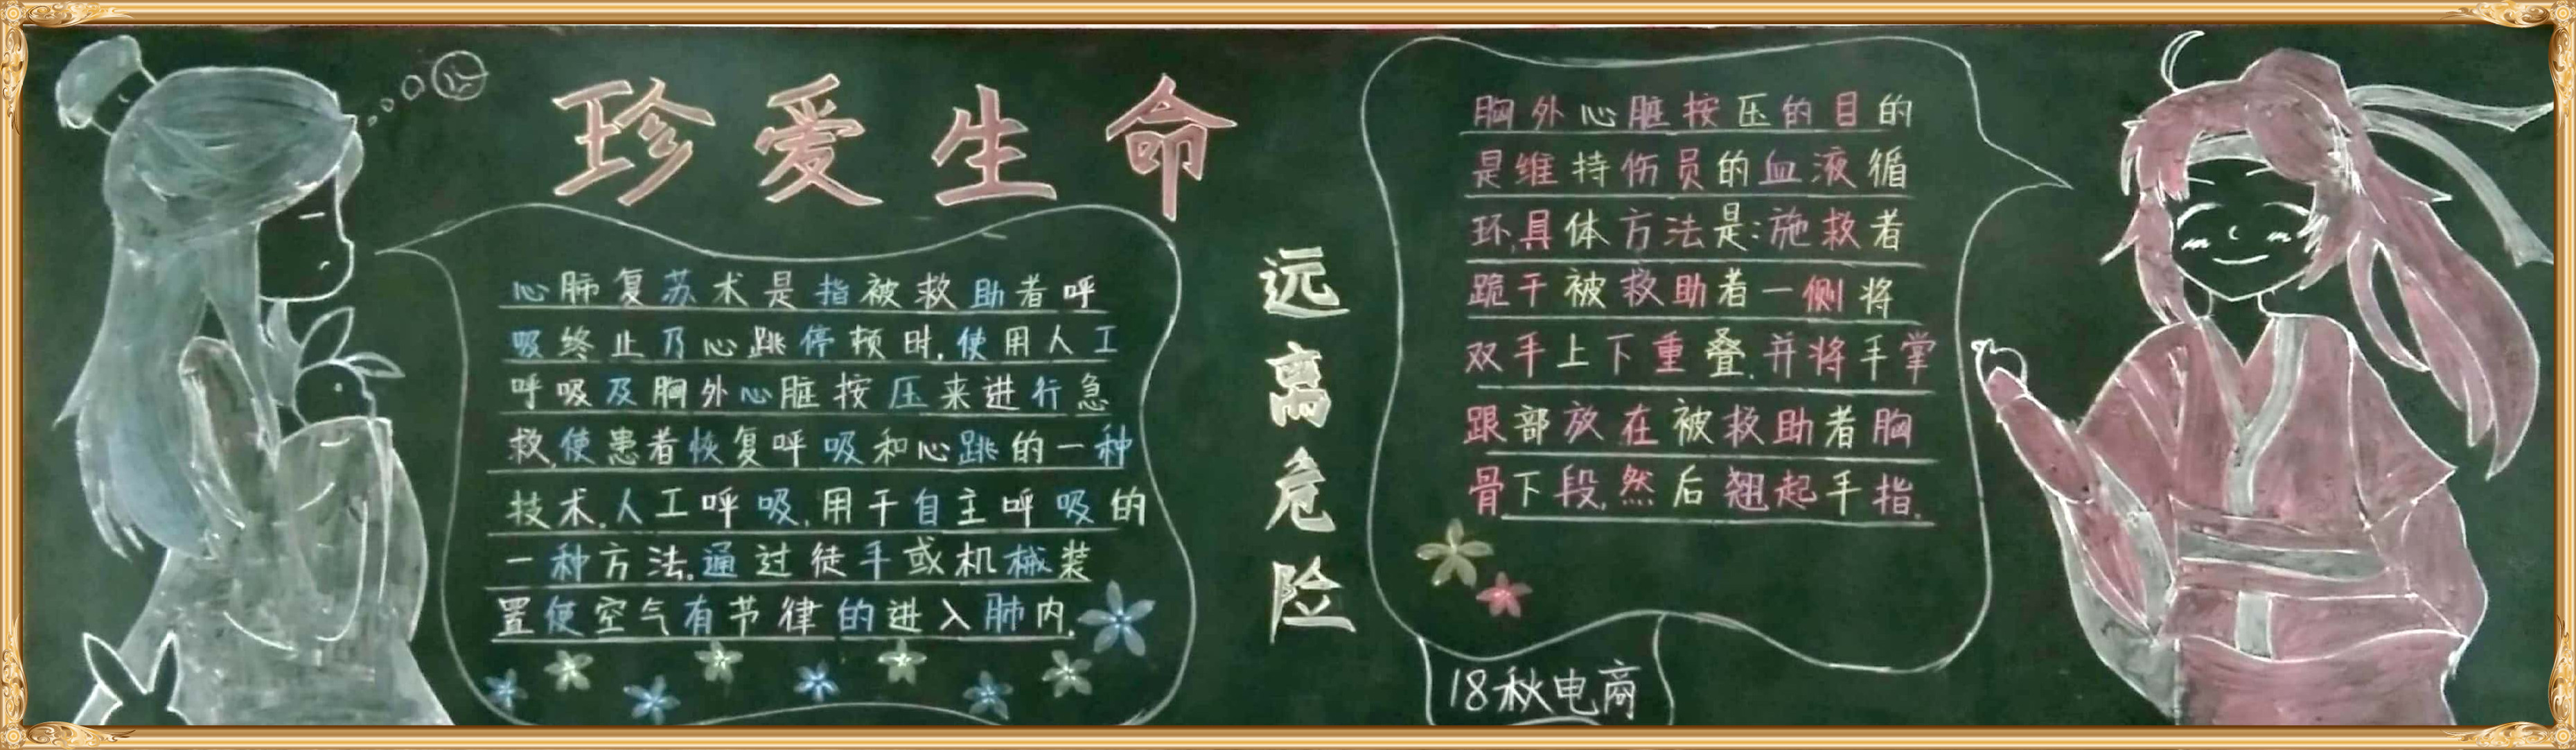 珍爱生命
心肺复苏术是指被救助者呼
吸终止乃心跳停顿时,使用人工
呼吸及胸外心脏按压来进行急
救,使患者恢复呼吸和心跳的一种
技术.人工呼吸,用于自主呼吸的
一种方法.通过徒手或机械装
置使空气有节律的进入肺内.
远离危险
胸外心脏按压的目的
是维持伤员的血液循
环,具体方法是:施救者
跪于被救助者一侧将
双手上下重叠.并将手掌
跟部放在被救助者胸
骨下段,然后翘起手指.
18秋电商